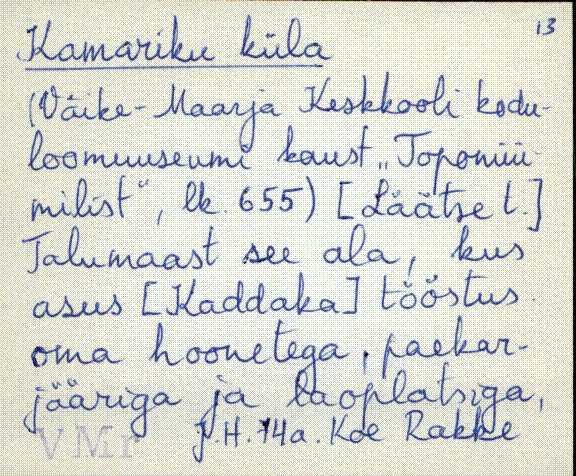 13
Kamariku küla
(Väike-Maarja Keskkooli kodu-
loomuuseumi kaust „Toponüü-
milist“, lk. 655) [Läätse t.]
Talumaast see ala, kus
asus [Kaddaka] tööstus
oma hoonetega, paekar-
jääriga ja laoplatsiga,
J.H. 74a. Koe Rakke
VMr